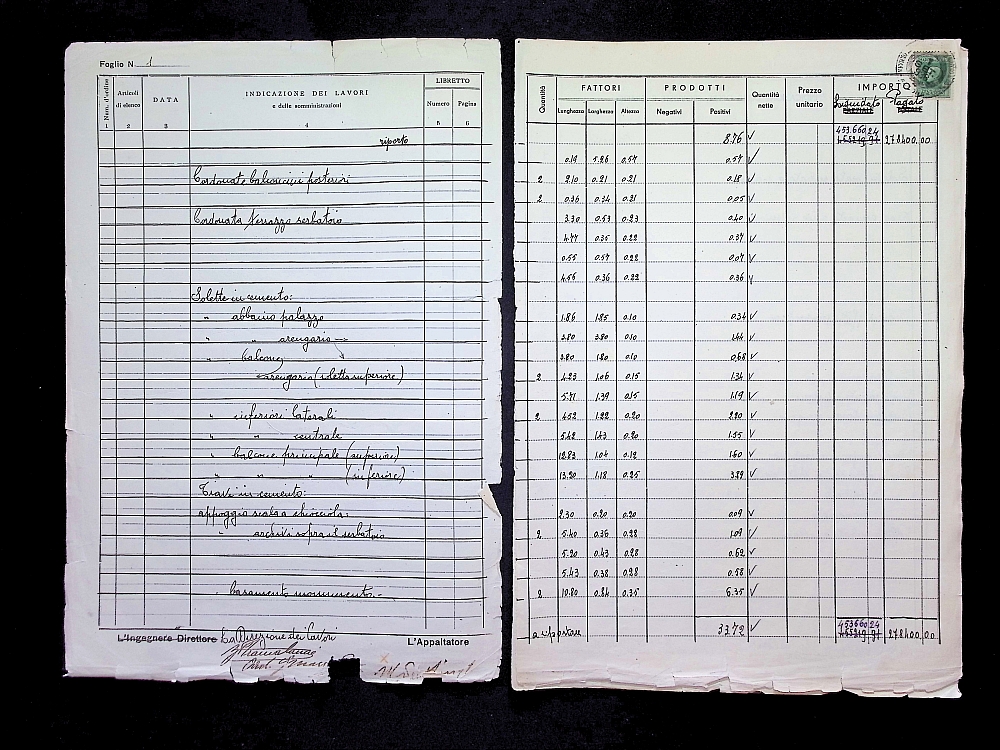 Foglio N. 1
Num. d'ordine
Articoli di elenco
DATA
INDICAZIONE DEI LAVORI
e delle somministrazioni
LIBRETTO
Numero Pagina
1 2 3 4 5 6
riporto
Cordonate balconcini posteriori
Cordonata terrazzo serbatoio
Solette in cemento:
" abbaino palazzo
" " arengario
" balcone
arengario (soletta superiore)
" inferiori laterali
" " centrale
" balcone principale (superiore)
" " " (inferiore)
Travi in cemento:
appoggio scala a chiocciola:
" archivi sopra il serbatoio
basamento monumento.-
L'Ingegnere Direttore La Direzione dei Lavori
L'Appaltatore
Quantità
FATTORI
PRODOTTI
Quantità nette
Prezzo unitario
IMPORTO
Lunghezza Larghezza Altezza Negativi Positivi
Liquidato Pagato
PARZIALE TOTALE
8.76 453.660 24 278400.00
0.19 5.26 0.57 0.57
2 2.10 0.21 0.21 0.18
2 0.36 0.34 0.21 0.05
3.30 0.53 0.23 0.40
4.77 0.35 0.22 0.37
0.55 0.57 0.22 0.07
4.56 0.36 0.22 0.36
1.86 1.85 0.10 0.34
3.80 3.80 0.10 1.44
3.80 1.80 0.10 0.68
2 4.23 1.06 0.15 1.34
5.71 1.39 0.15 1.19
2 4.52 1.22 0.20 2.20
5.42 1.43 0.20 1.55
12.83 1.04 0.12 1.60
13.20 1.18 0.25 3.89
2.30 0.20 0.20 0.09
2 5.40 0.36 0.28 1.09
5.20 0.43 0.28 0.62
5.43 0.38 0.28 0.58
2 10.80 0.84 0.35 6.35
a riportare 33.72 453660 24 278400.00